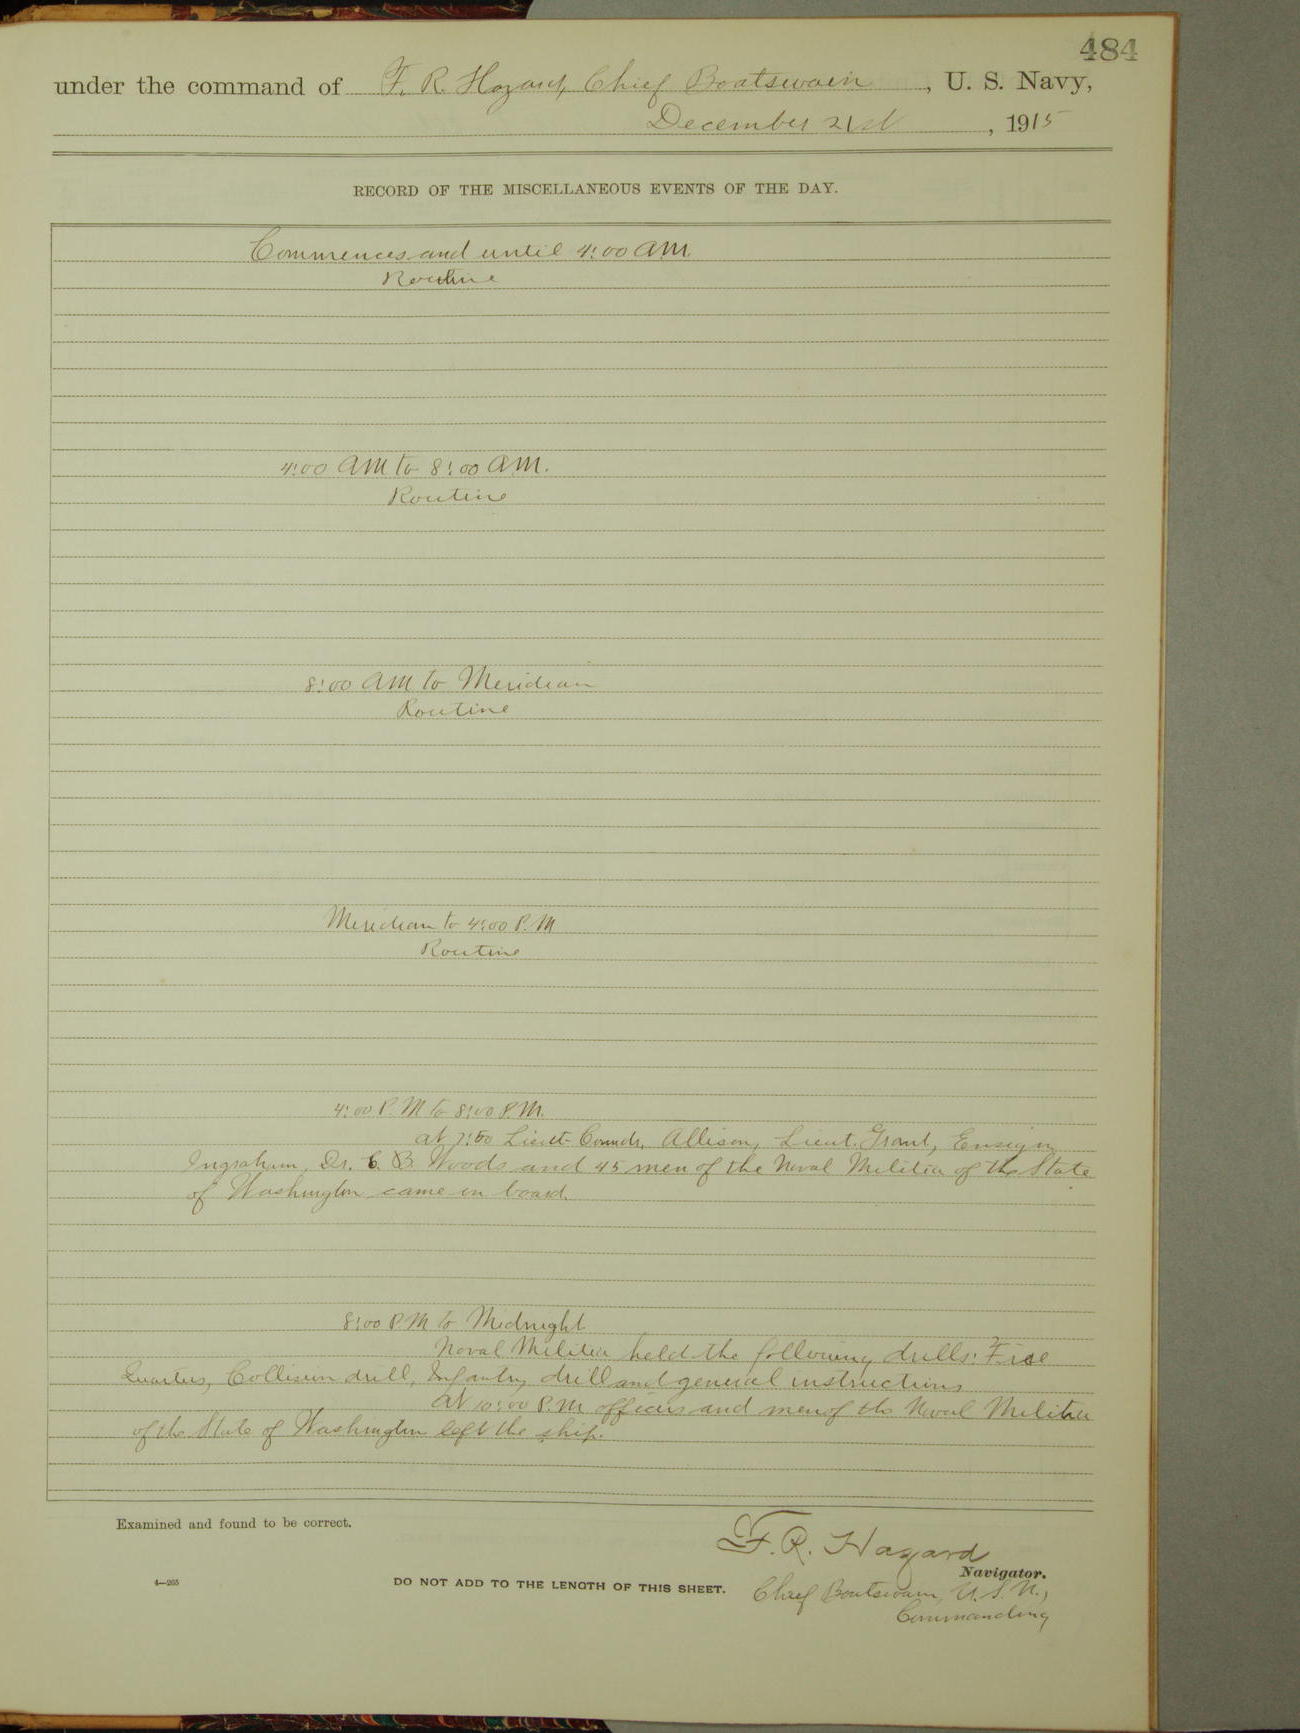 484
under the command of F. R. Hazard, Chief Boatswain, U. S. Navy,
December 21st, 1915
RECORD OF THE MISCELLANEOUS EVENTS OF THE DAY.
Commences and until 4:00 AM.
Routine
4:00 AM to 8:00 AM.
Routine
8:00 AM to Meridian
Routine
Meridian to 4:00 P.M
Routine
4:00 P.M to 8:00 P.M.
at 7:50 Lieut- Comndr. Allison, Lieut. Grant, Ensign
Ingraham, Dr. C. B. Woods and 45 men of the Naval Militia of the State
of Washington came on board.
8:00 P.M to Midnight
Naval Militia held the following drills: Fire
Quarters, Collision drill, Infantry drill and general instructions
At 10:00 P.M. officers and men of the Naval Militia
of the State of Washington left the ship.
Examined and found to be correct.
F. R. Hazard
Navigator.
4—265
DO NOT ADD TO THE LENGTH OF THIS SHEET.
Chief Boatswain, U.S.N.,
Commanding